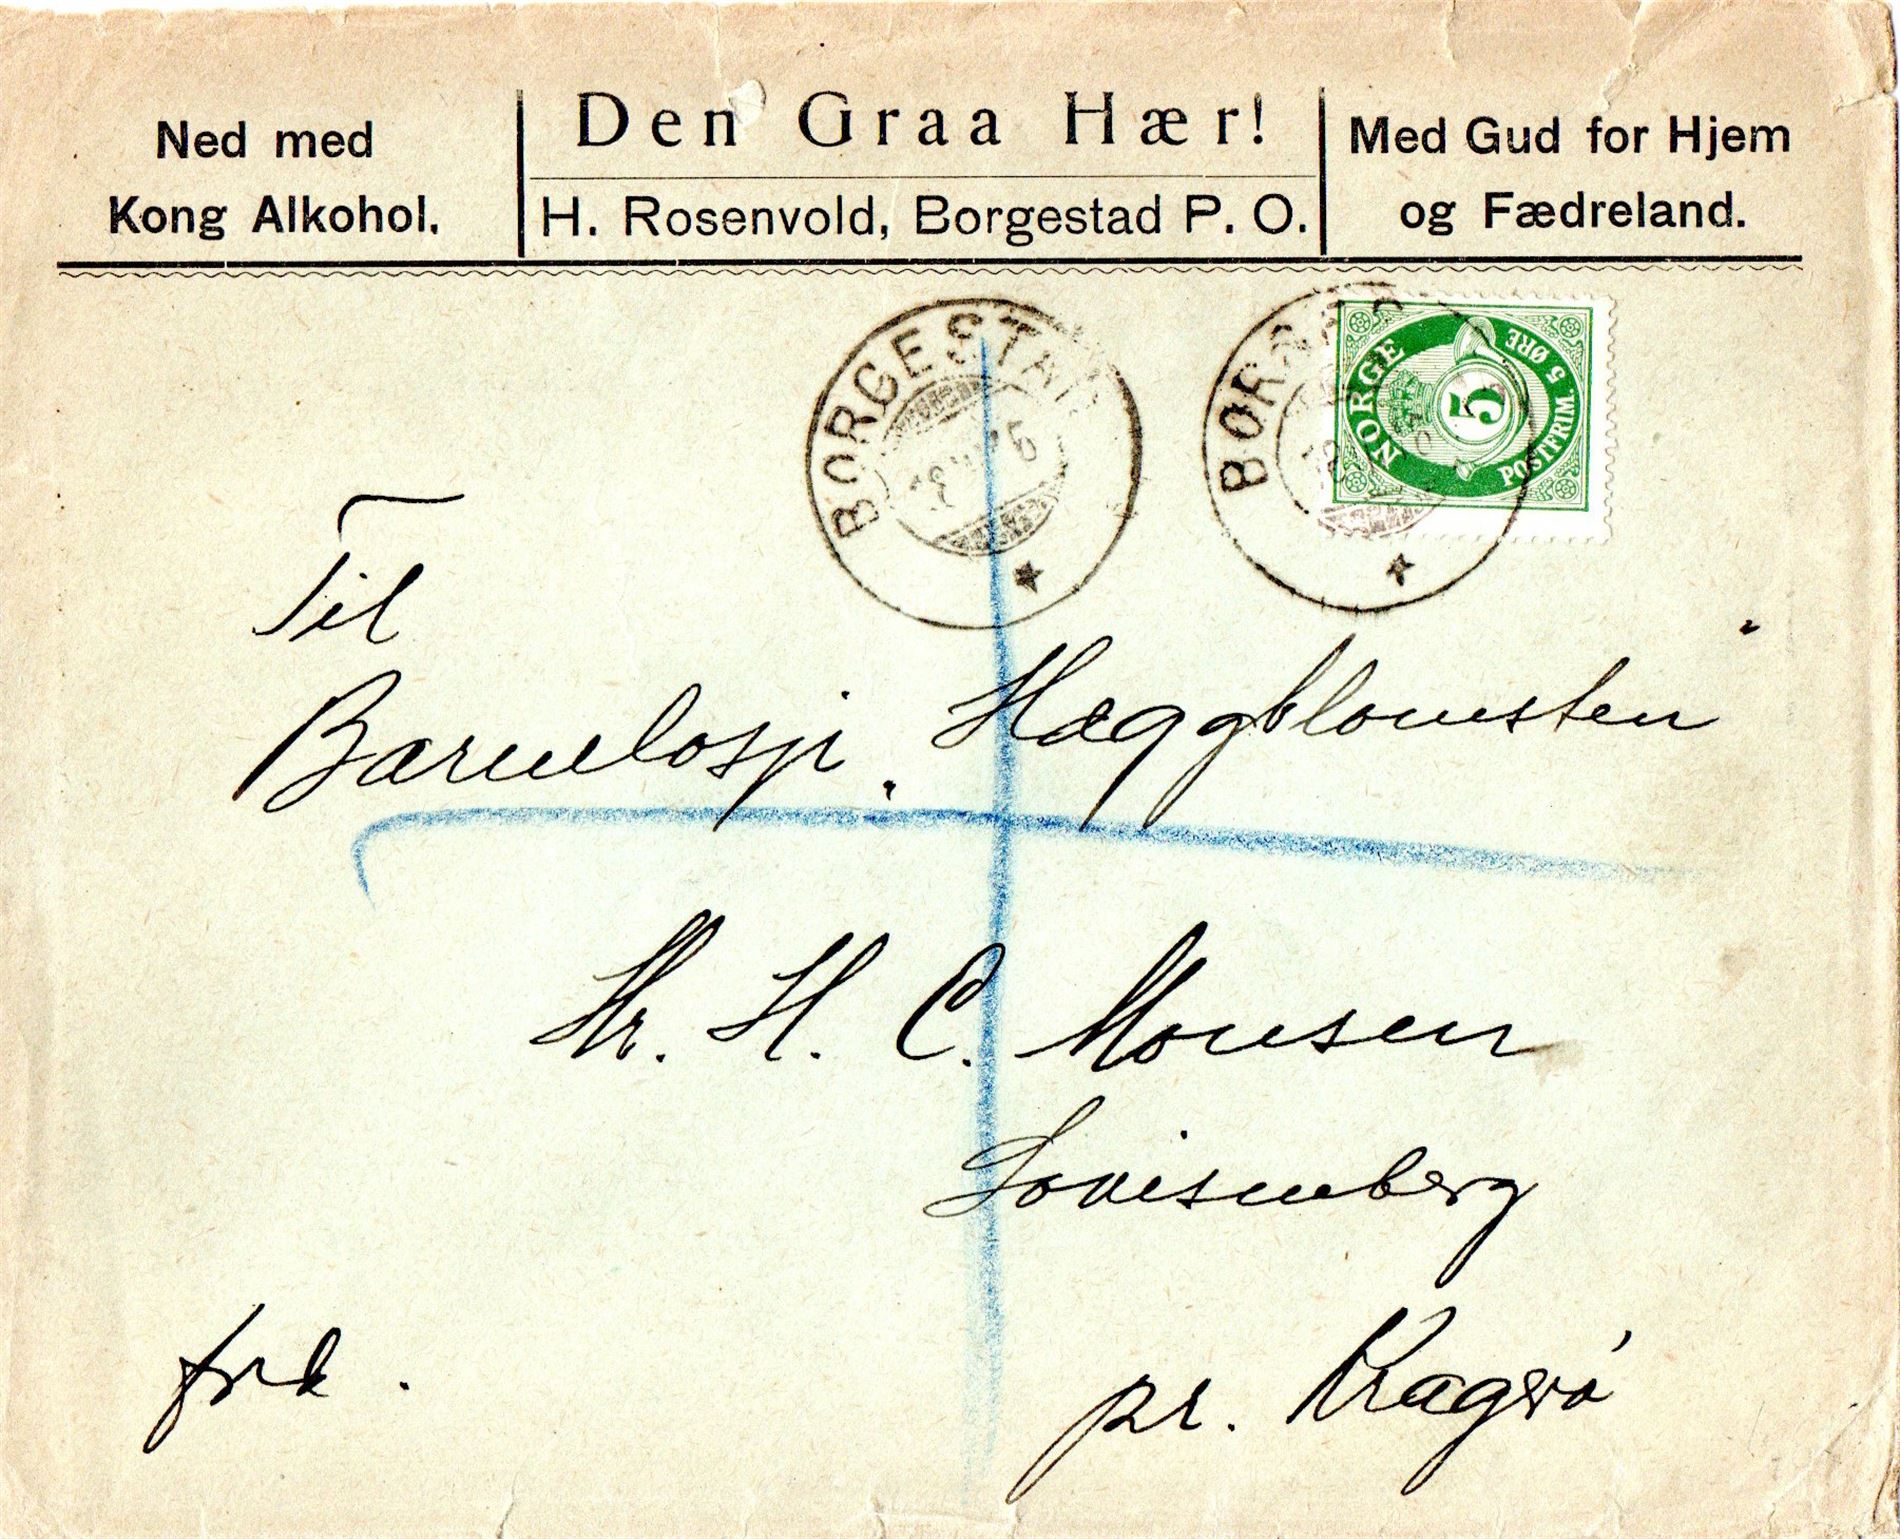 Ned med
Kong Alkohol.
Den Graa Hær!
H. Rosenvold, Borgestad P. O.
Med Gud for Hjem
og Fædreland.
BORGESTAD
NORGE
5
POSTFRIM. 5 ØRE
Til
Barnelosji „Hæggblomsten"
Hr. H. C. Monsen
Lovisenberg
frk.
pr. Kragerø